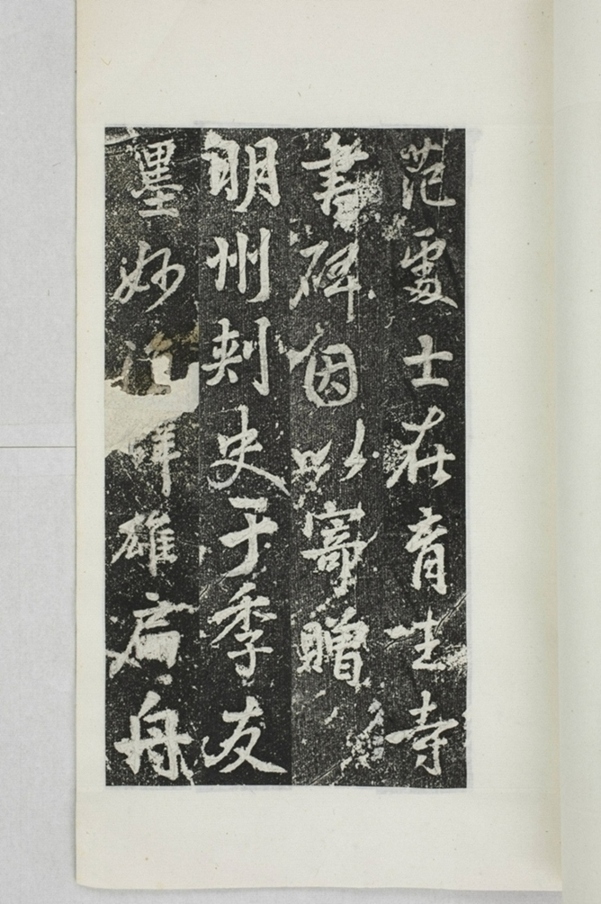 范處士在育王寺
書碑因以寄贈
明州刾史于季友
墨妙雄扁舟